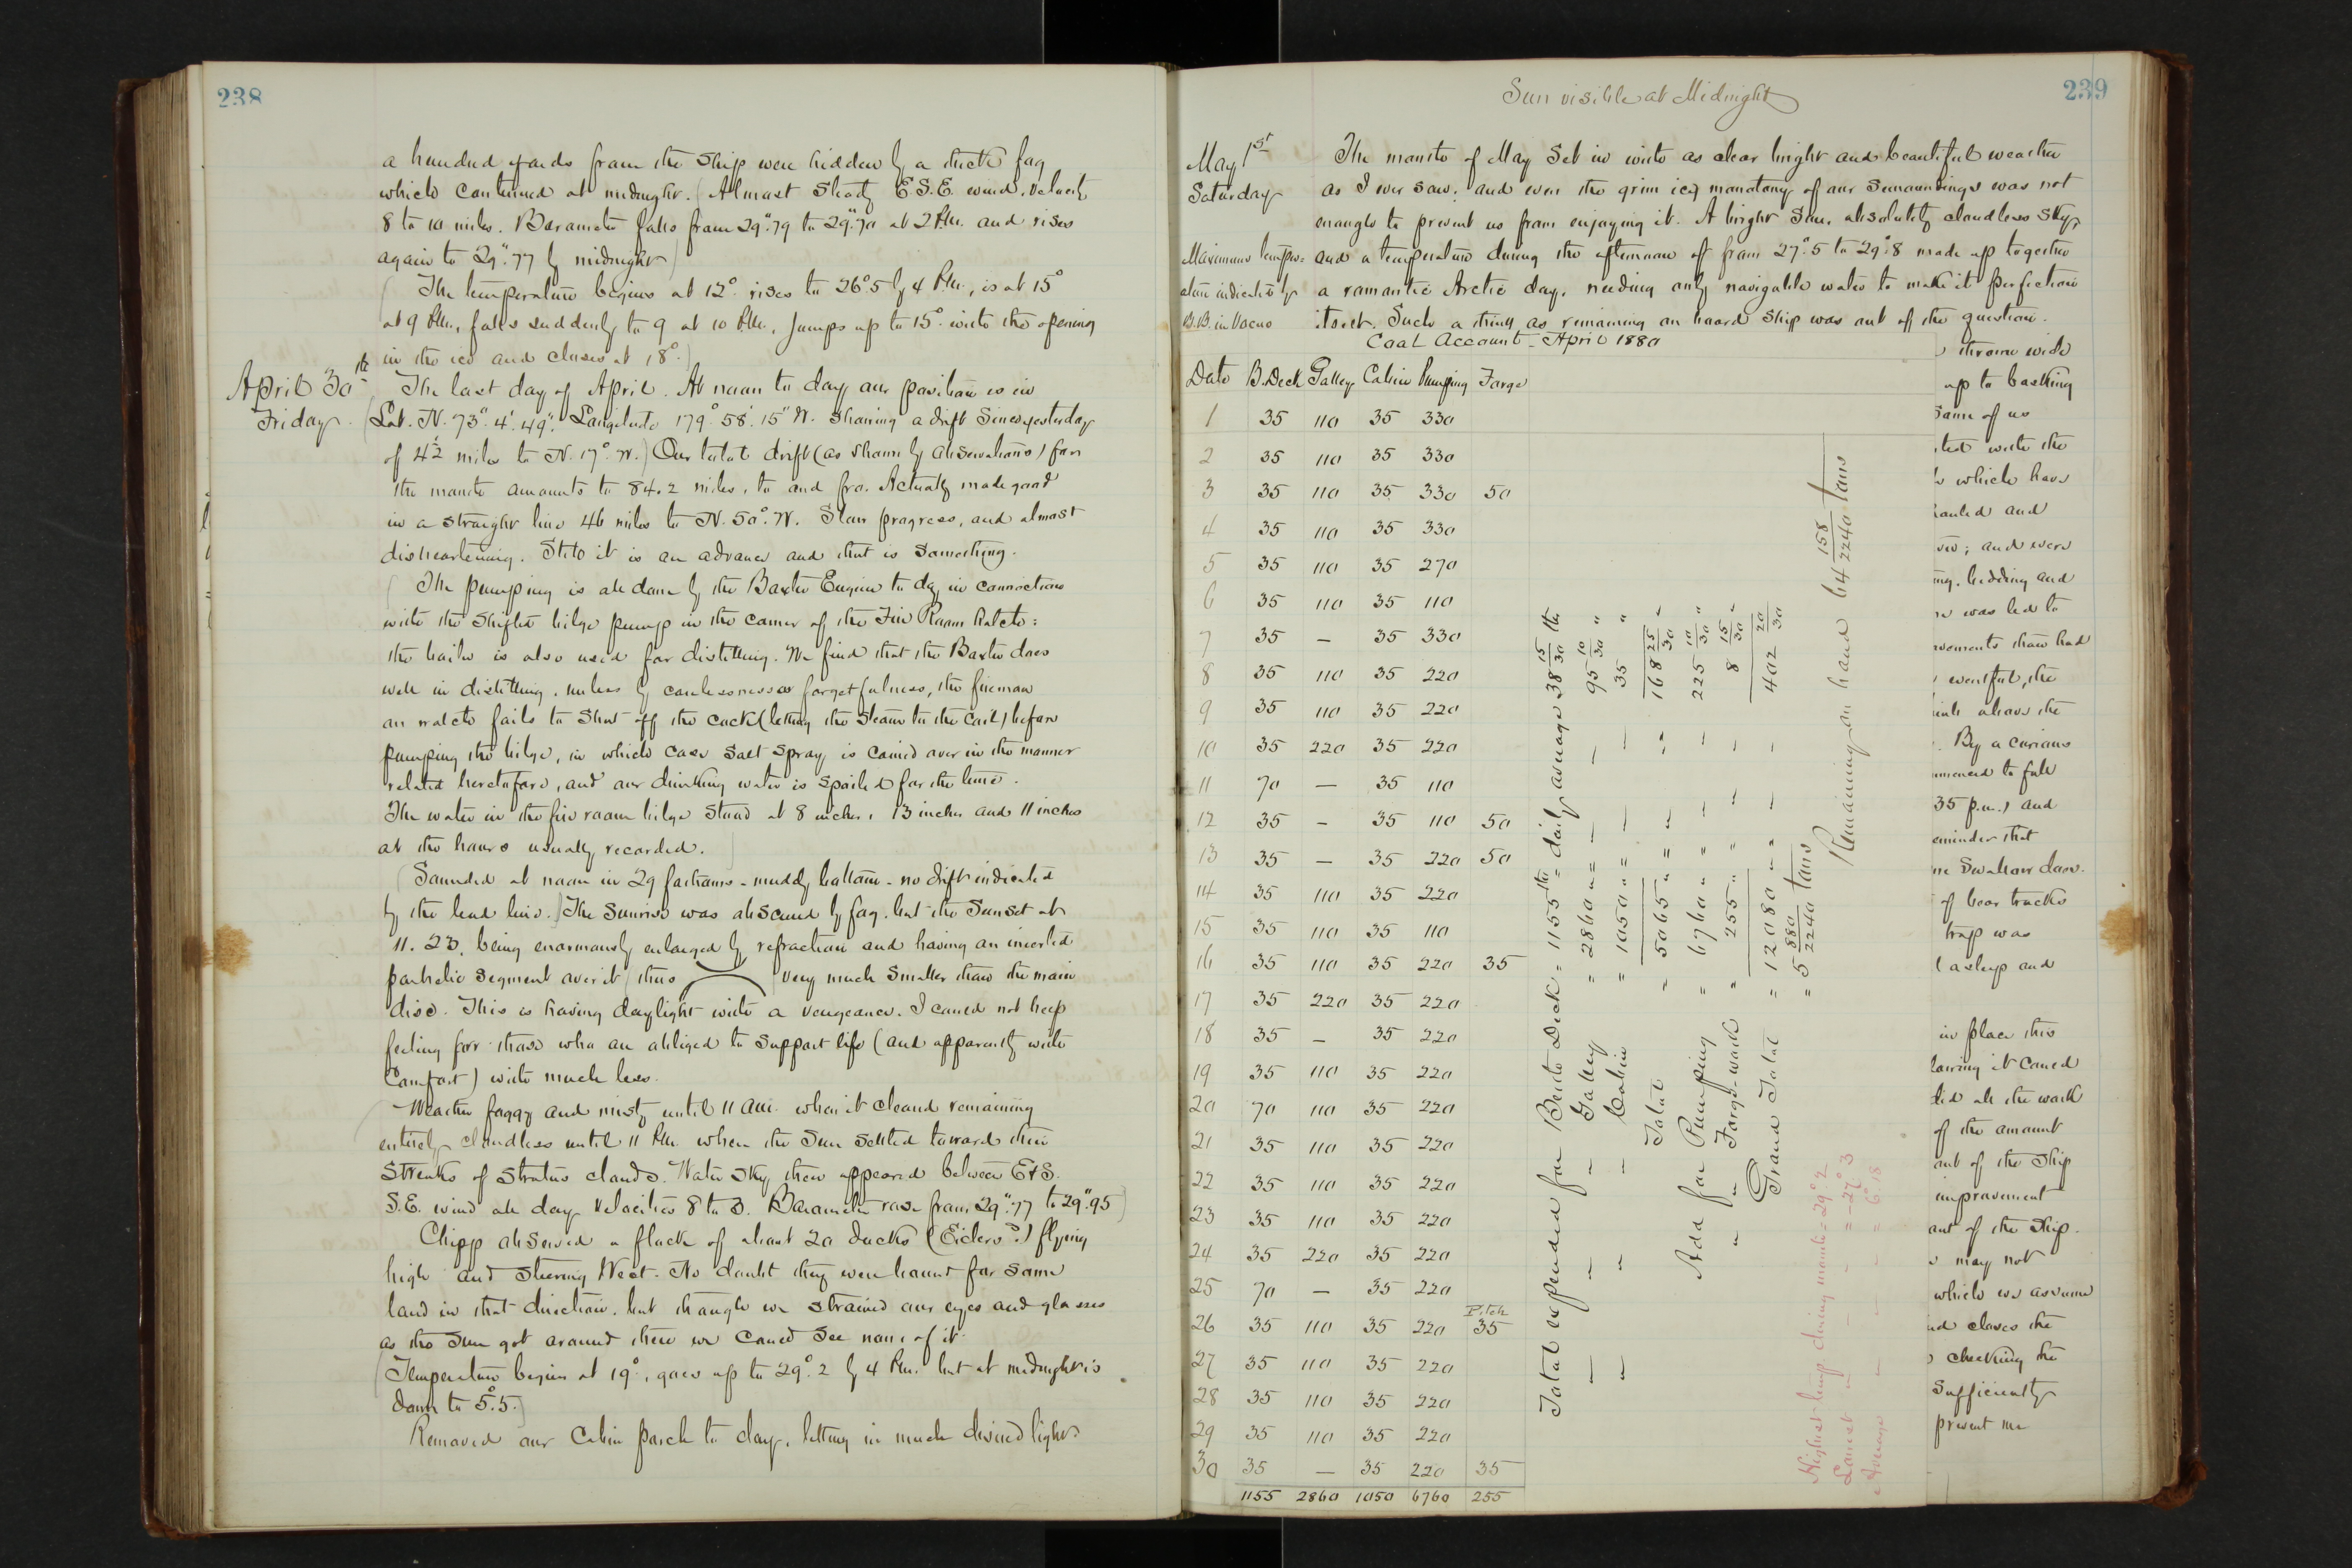 238
a hundred yards from the ship were hidden by a thick fog
which continued at midnight. (Almost steady E.S.E. wind, velocity
8 to 10 miles. Barometer falls from 29".79 to 29".70 at 2 P.M. and rises
again to 29".77 by midnight)
(The temperature begins at 12°. rises to 26°.5 by 4 P.M., is at 15°
at 9 P.M., falls suddenly to 9 at 10 P.M., jumps up to 15° with the opening
in the ice and closes at 18°.)
April 30th
Friday.
The last day of April. At noon to day our position is in
(Lat. N. 73°. 4'. 49". Longitude 179°. 58'. 15" W. showing a drift since yesterday
of 4½ miles to N. 17° W.) Our total drift (as shown by observations) for
the month amounts to 84.2 miles, to and fro. Actually made good
in a straight line 46 miles to N. 50°. W. Slow progress, and almost
disheartening. Still it is an advance and that is something.
(The pumping is all done by the Baxter Engine to day in connection
with the shifted bilge pump in the corner of the Fire Room hatch:
the boiler is also used for distilling. We find that the Baxter does
well in distilling, unless by carelessness or forgetfulness, the fireman
on watch fails to shut off the cock (letting the steam to the coil) before
pumping the bilge, in which case salt spray is carried over in the manner
related heretofore, and our drinking water is spoiled for the time.
The water in the fire room bilge stood at 8 inches, 13 inches and 11 inches
at the hours usually recorded.)
(Sounded at noon in 29 fathoms - muddy bottom - no drift indicated
by the lead line.) The Sunrise was obscured by fog, but the Sunset at
11. 23. being enormously enlarged by refraction and having an inverted
parhelic segment over it (thus very much smaller than the main
disc. This is having daylight with a vengeance. I could not help
feeling for those who are obliged to support life (and apparently with
Comfort) with much less.
(Weather foggy and misty until 11 A.M. when it cleared remaining
entirely cloudless until 11 P.M. when the Sun settled toward thin
streaks of stratus clouds. Water sky then appeared between E & S.
S.E. wind all day velocities 8 to 3. Barometer rose from 29".77 to 29".95)
Chipp observed a flock of about 20 ducks (Eiders?) flying
high and steering West. No doubt they were bound for some
land in that direction, but though we strained our eyes and glasses
as the Sun got around there we could see none of it.
(Temperature begins at 19°, goes up to 29°.2 by 4 P.M. but at midnight is
down to 5°.5.)
Removed our Cabin porch to day, letting in much desired light.
239
Sun visible at Midnight
May 1st
Saturday
Maximum temper-
ature indicated by
B.B. in Vacuo
The month of May set in with as clear bright and beautiful weather
as I ever saw: and even the grim icy monotony of our surroundings was not
enough to prevent us from enjoying it. A bright Sun, absolutely cloudless sky,
and a temperature during the afternoon of from 27°.5 to 29°.8 made up together
a romantic Arctic day, needing only navigable water to make it perfection
itself. Such a thing as remaining on board ship was out of the question.
Coal Account - April 1880
Date B.Deck Galley Cabin Pumping Forge
1 35 110 35 330
2 35 110 35 330
3 35 110 35 330 50
4 35 110 35 330
5 35 110 35 270
6 35 110 35 110
7 35 — 35 330
8 35 110 35 220
9 35 110 35 220
10 35 220 35 220
11 70 — 35 110
12 35 — 35 110 50
13 35 — 35 220 50
14 35 110 35 220
15 35 110 35 110
16 35 110 35 220 35
17 35 220 35 220
18 35 — 35 220
19 35 110 35 220
20 70 110 35 220
21 35 110 35 220
22 35 110 35 220
23 35 110 35 220
24 35 220 35 220
25 70 — 35 220
Pitch
26 35 110 35 220 35
27 35 110 35 220
28 35 110 35 220
29 35 110 35 220
30 35 — 35 220 35
1155 2860 1050 6760 255
Total expended for Berth Deck = 1155 lbs = daily average 38 15/30 lbs
" " " Galley = 2860 " = — — 95 10/30 "
" " " Cabin = 1050 " = — — 35 "
Total = 5065 " = " " 168 25/30 "
Add for Pumping = 6760 " = " " 225 10/30 "
" " Forge-work = 255 " " " " 8 15/30 "
Grand Total = 12080 " = — — 402 20/30
= 5 880/2240 tons
Remaining on hand 64 158/2240 tons
Highest temp during month = 29°.2
Lowest " — — = -27°.3
Average " — — = 6°.18
throwe wide
up to basking
Some of us
ted with the
which have
hauled and
; and were
ing, bedding and
was led to
ovements than had
eventful, the
above the
. By a curious
mmenced to fall
35 p.m.) and
eminder that
ne Swallow does.
of bear tracks
trap was
(asleep and
in place this
lowing it could
did all the work
of the amount
out of the ship
improvement
out of the ship.
may not
which we assume
nd closes the
checking the
Sufficiently
prevent me